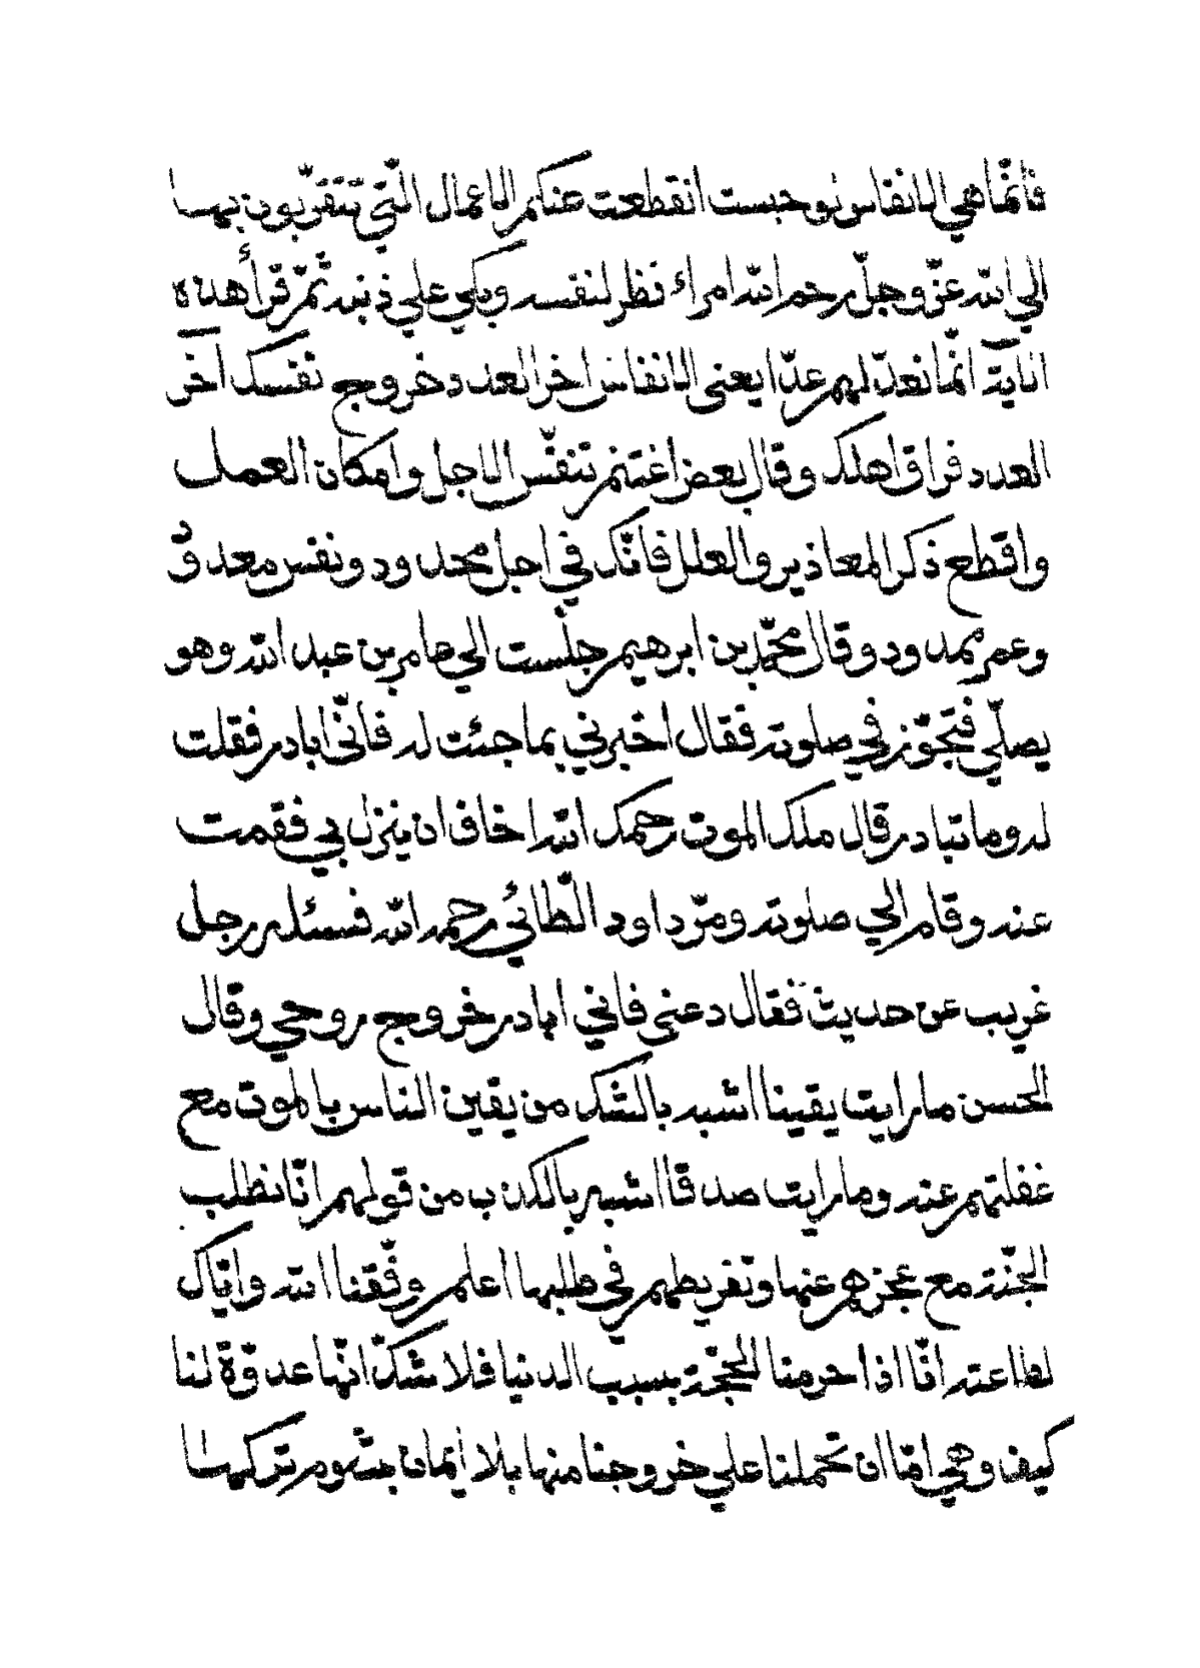 فانّما هي الانفاس لو حبست انقطعت عنكم الاعمال الّتي تتقرّبون بها
الي الله عزّ وجلّ رحم الله امراء نظر لنفسه وبكي علي ذنبه ثمّ قرأ هذه
الآية انّما نعدّ لهم عدّا يعنى الانفاس اخر العدد خروج نفسك آخر
العدد فراق اهلك وقال بعض اغتنم تنفّس الاجل وامكان العمل
واقطع ذكر المعاذير والعلل فانّك في اجل محدود ونفس معدود
وعمر ممدود وقال محمّد بن ابرهيم جلست الي عامر بن عبد الله وهو
يصلّي فتجوّز في صلوته فقال اخبرني بما جئت له فانّى ابادر فقلت
له وما تبادر قال ملك الموت رحمك الله اخاف ان ينزل بي فقمت
عنه وقام الي صلوته ومرّ داود الطّائي رحمه الله فسئله رجل
غريب عن حديث فقال دعنى فاني ابادر خروج روحي وقال
الحسن ما رايت يقينا اشبه بالشك من يقين الناس بالموت مع
غفلتهم عنه وما رايت صدقا اشبه بالكذب من قولهم انّا نطلب
الجنّة مع عجزهم عنها وتفريطهم في طلبها اعلم وفّقنا الله وايّاك
لطاعته انّا اذا حرمنا الحجّة بسبب الدنيا فلا شكّ انّها عدوّة لنا
كيف وهي امّا ان تحملنا علي خروجنا منها بلا ايمان بشوم تركها